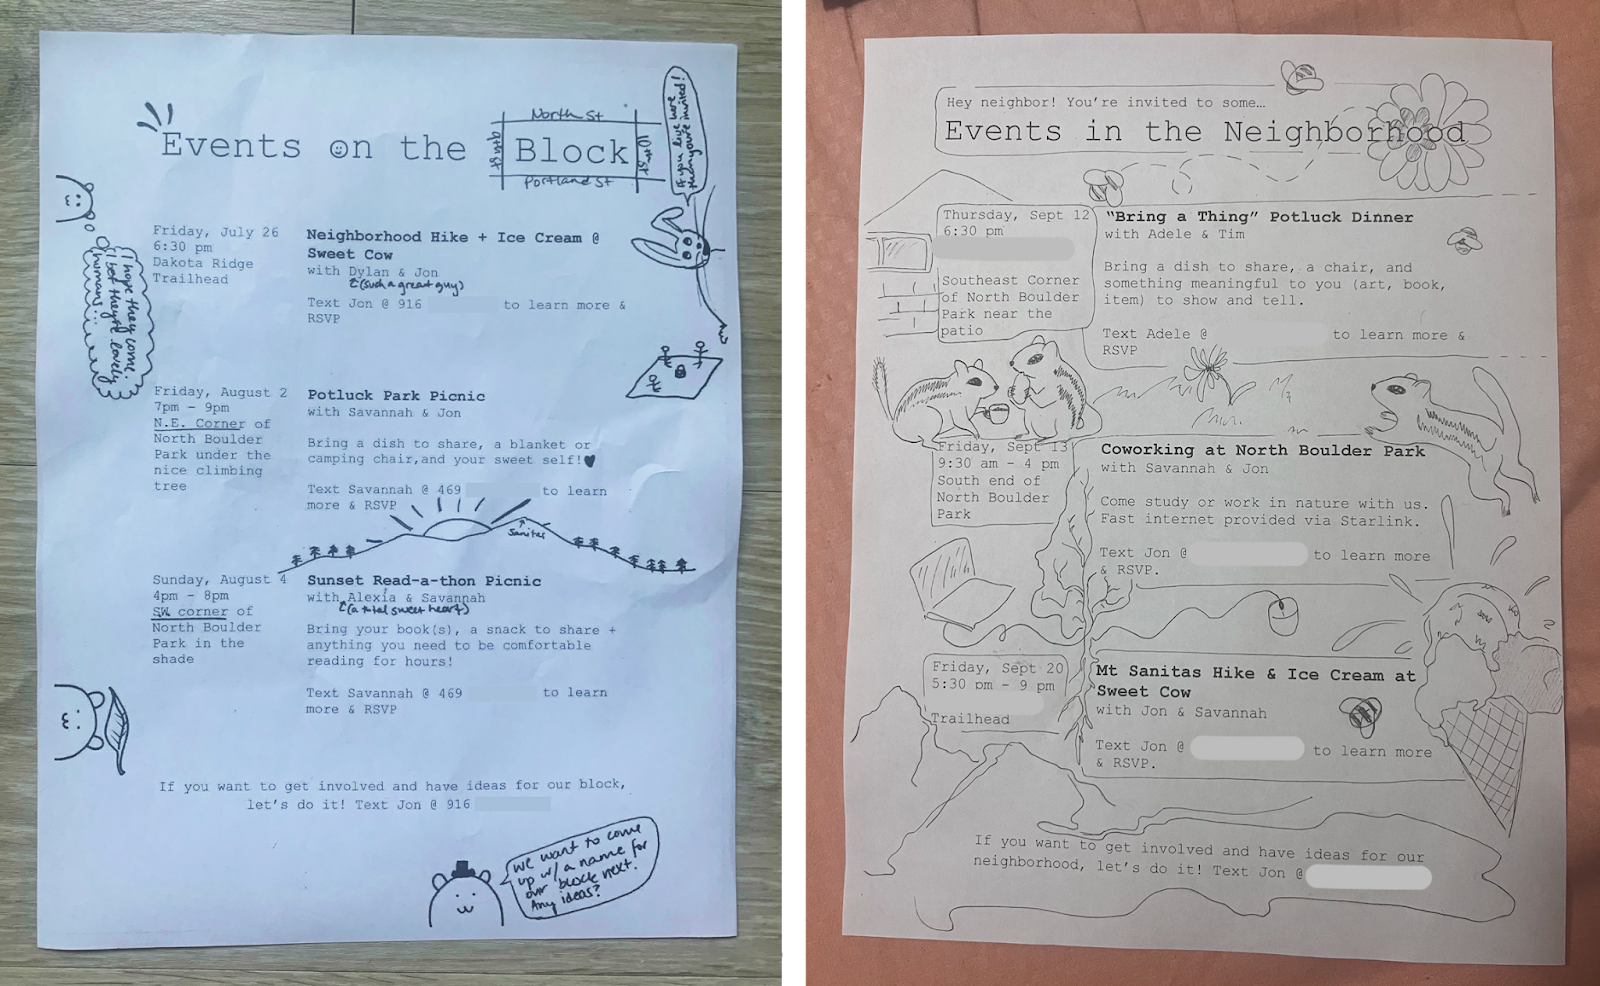 Events on the Block
North St
9th St
10th St
Portland St
If you live here
then you're invited!
I hope they come.
I bet they're lovely
humans...
Friday, July 26
6:30 pm
Dakota Ridge
Trailhead
Neighborhood Hike + Ice Cream @
Sweet Cow
with Dylan & Jon
(such a great guy)
Text Jon @ 916 to learn more &
RSVP
Friday, August 2
7pm – 9pm
N.E. Corner of
North Boulder
Park under the
nice climbing
tree
Potluck Park Picnic
with Savannah & Jon
Bring a dish to share, a blanket or
camping chair,and your sweet self!
Text Savannah @ 469 to learn
more & RSVP
Sanitas
Sunday, August 4
4pm – 8pm
SW corner of
North Boulder
Park in the
shade
Sunset Read-a-thon Picnic
with Alexia & Savannah
(a total sweet heart)
Bring your book(s), a snack to share +
anything you need to be comfortable
reading for hours!
Text Savannah @ 469 to learn
more & RSVP
If you want to get involved and have ideas for our block,
let's do it! Text Jon @ 916
We want to come
up w/ a name for
our block next.
Any ideas?
Hey neighbor! You're invited to some…
Events in the Neighborhood
Thursday, Sept 12
6:30 pm
Southeast Corner
of North Boulder
Park near the
patio
"Bring a Thing" Potluck Dinner
with Adele & Tim
Bring a dish to share, a chair, and
something meaningful to you (art, book,
item) to show and tell.
Text Adele @ to learn more &
RSVP
Friday, Sept 13
9:30 am – 4 pm
South end of
North Boulder
Park
Coworking at North Boulder Park
with Savannah & Jon
Come study or work in nature with us.
Fast internet provided via Starlink.
Text Jon @ to learn more
& RSVP.
Friday, Sept 20
5:30 pm – 9 pm
Trailhead
Mt Sanitas Hike & Ice Cream at
Sweet Cow
with Jon & Savannah
Text Jon @ to learn more
& RSVP.
If you want to get involved and have ideas for our
neighborhood, let's do it! Text Jon @